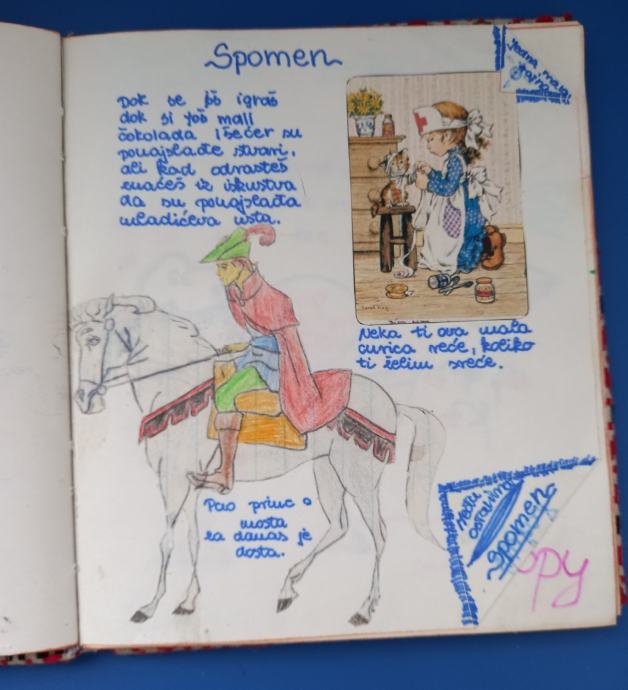 Spomen
Jedna mala
tajna
Dok se još igraš
dok si još mali
čokolada i šećer su
ponajslađe stvari,
ali kad odrasteš
znaćeš iz iskustva
da su ponajslađa
mladićeva usta.
Neka ti ova mala
curica reće, koliko
ti želim sreće.
Pao princ s
mosta
za danas je
dosta.
ostavimo
Spomen
py